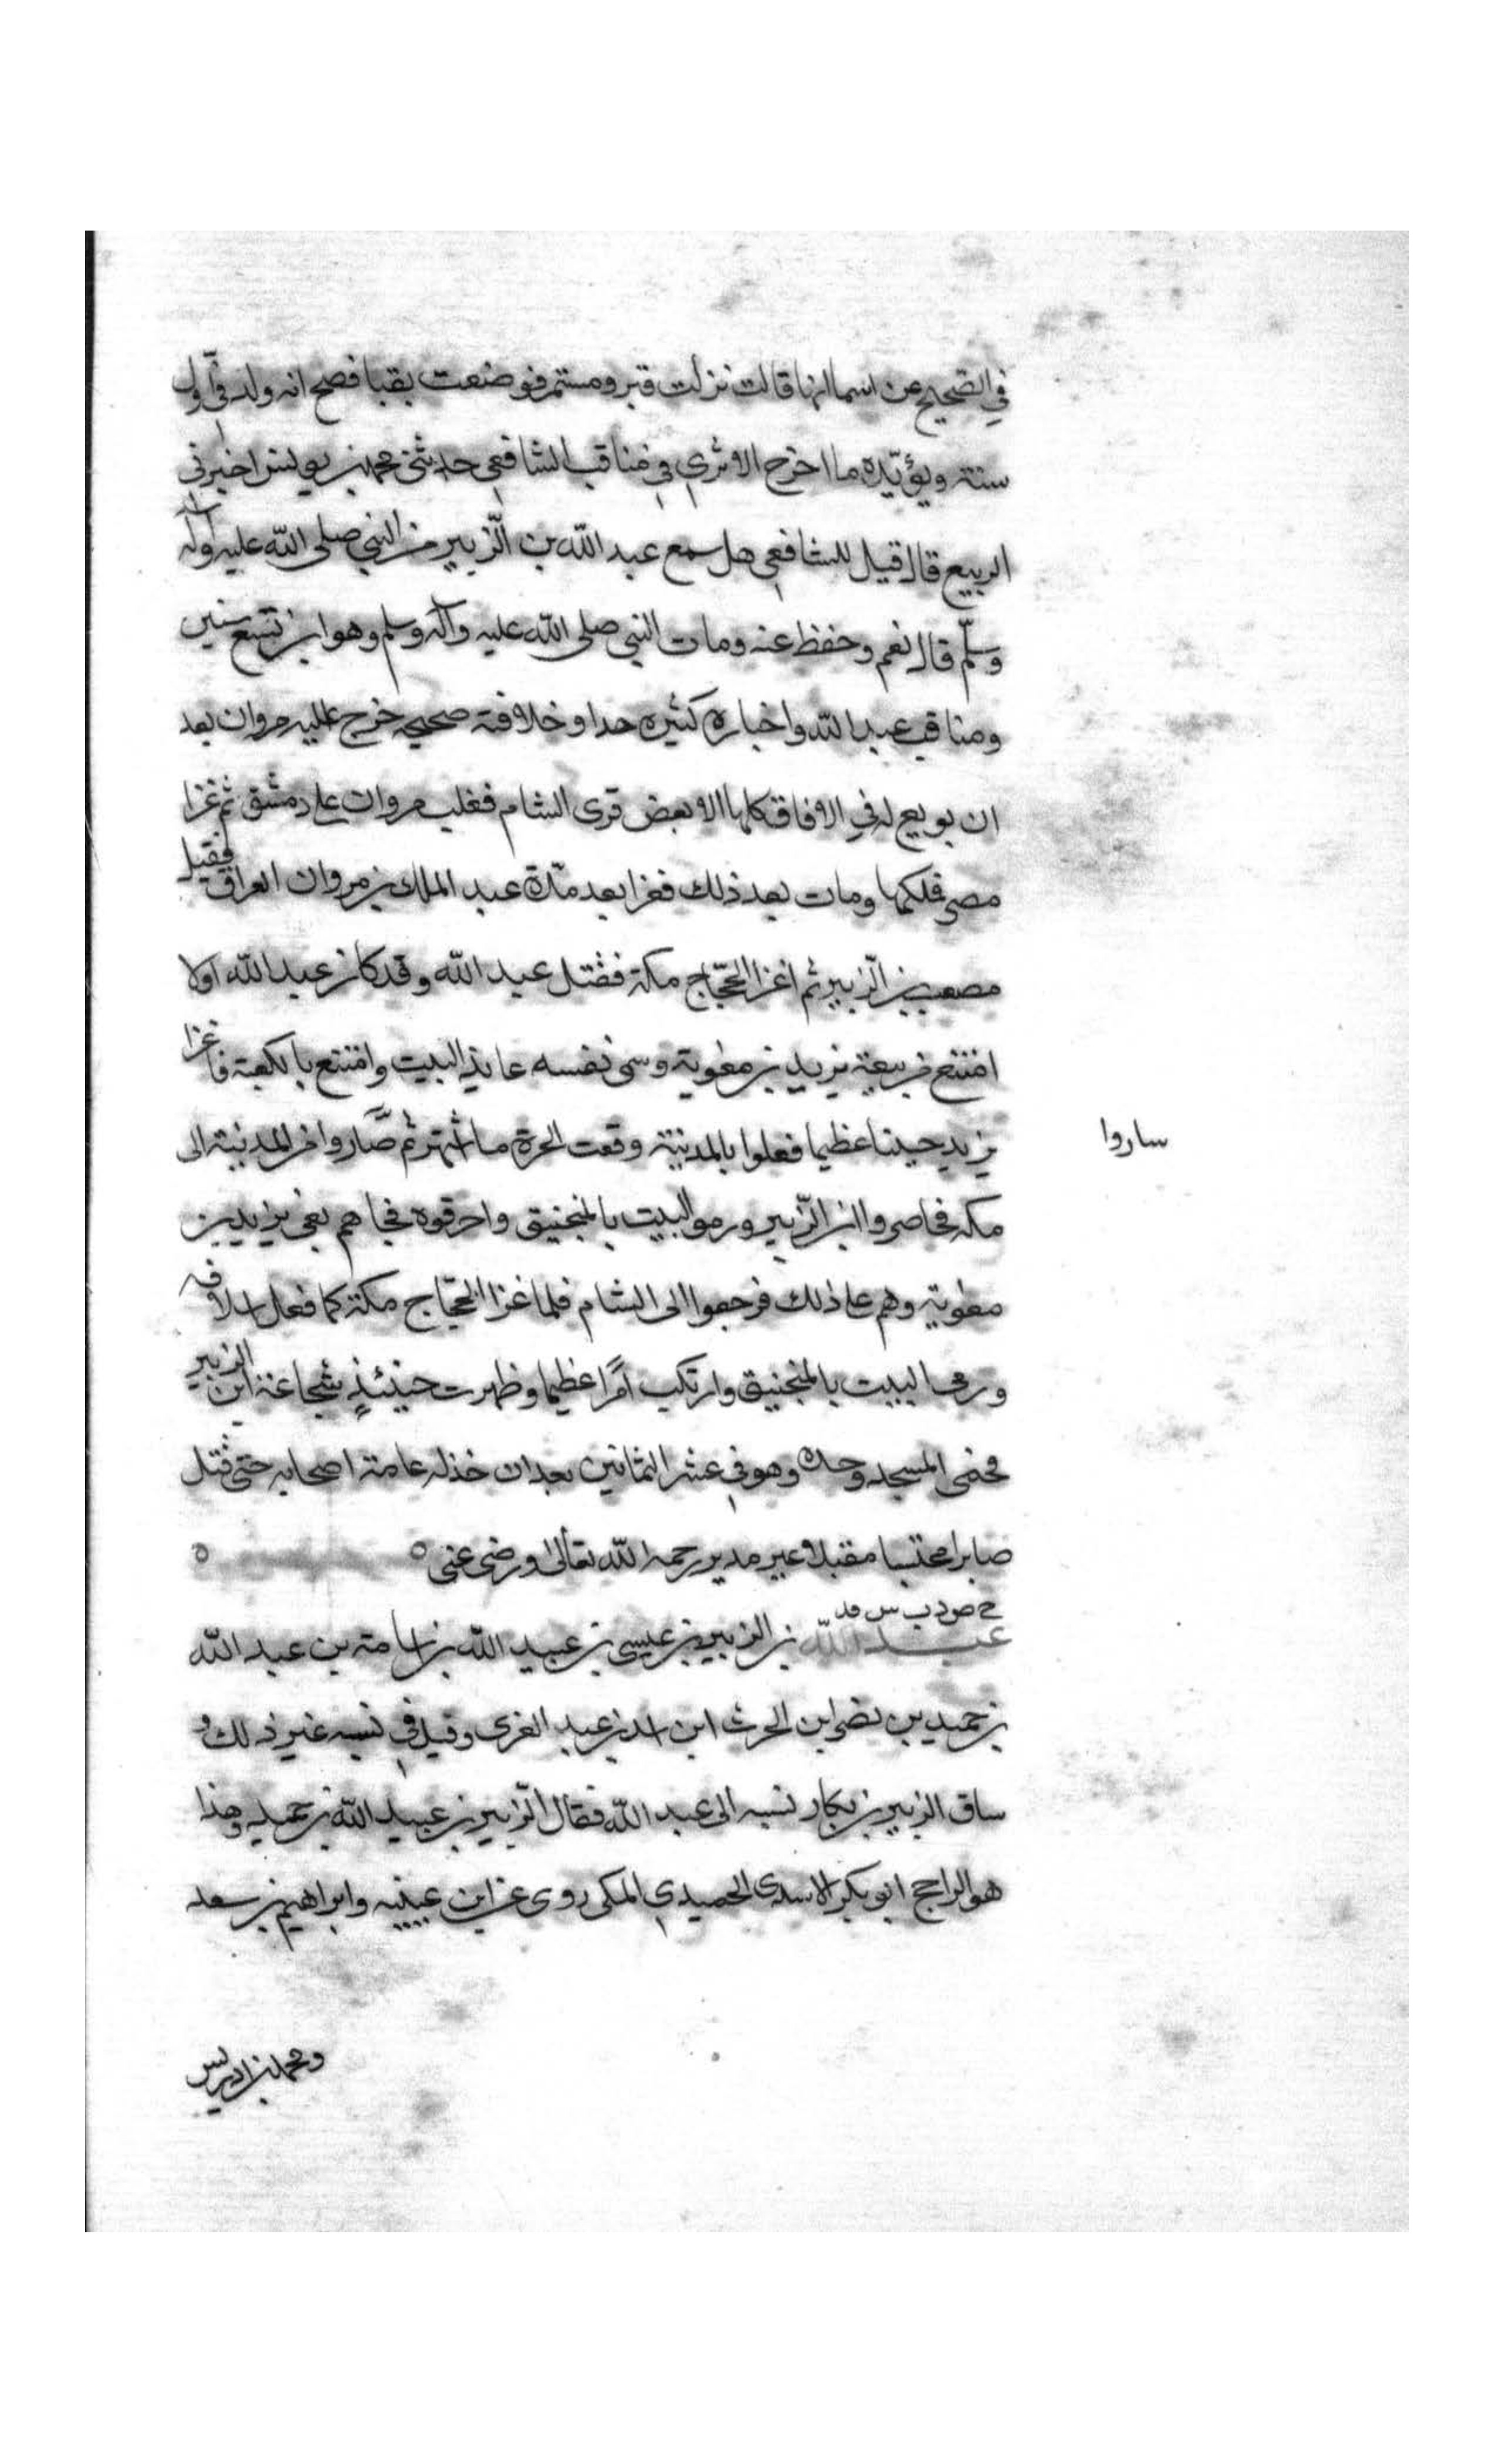 في الصحيح عن اسما انها قالت نزلت قبر ومستمر فوضعت بقبا فصح انه ولد في اول
سنة ويؤيّده ما اخرج الابري في مناقب الشافعي حدثني محمد بن يونس اخبرني
الربيع قال قيل للشافعي هل سمع عبد الله بن الزّبير من النبي صلى الله عليه وآله
وسلّم قال نعم وحفظ عنه ومات النبي صلى الله عليه وآله وسلم وهو ابن تسع سنين
ومناقب عبد الله واخباره كثيره جدا وخلافته صحيحه خرج عليه مروان بعد
ان بويع له في الافاق كلها الا بعض قرى الشام فغلب مروان على دمشق ثم غزا
مصر فلكها ومات بعد ذلك فغزا بعد مدّة عبد الملك بن مروان العراق فقيل
مصعب بن الزّبير ثم اغزا الحجّاج مكة فقتل عبد الله وقد كان عبد الله اولا
امتنع من بيعة يزيد بن معوية وسمى نفسه عايذ البيت وامتنع بالكعبة فاغزا
يزيد جيشا عظيما فعلوا بالمدينة وقعت الحرة ما اشتهر ثم صاروا من المدينة الى
ساروا
مكه فحاصروا ابن الزّبير ورموا البيت بالمنجنيق واحرقوه فجاهم نعى يزيد بن
معوية وهم على ذلك فرجعوا الى الشام فلما غزا الحجّاج مكة كما فعل اسلافه
ورمى البيت بالمنجنيق وارتكب امرًا عظيما وظهرت حينئذٍ شجاعة ابن الزبير
فحمى المسجد وحده وهو في عشر الثمانين بعد ان خذله عامة اصحابه حتى قتل
صابرا محتسبا مقبلا غير مدبر رحمه الله تعالى ورضي عنى ٥ ٥
خ ص د ب س فد
عبد الله بن الزبير بن عيسى بن عبيد الله بن اسامة بن عبد الله
بن حميد بن نصر ابن الحرث ابن اسد بن عبد العزى وقيل في نسبه غير ذلك و
ساق الزبير بن بكار نسبه الى عبد الله فقال الزّبير بن عبيد الله بن حميد وهذا
هو الراجح ابو بكر الاسدي الحميدي المكي روى عن ابن عيينه وابراهيم بن سعد
ومحمد بن ادريس